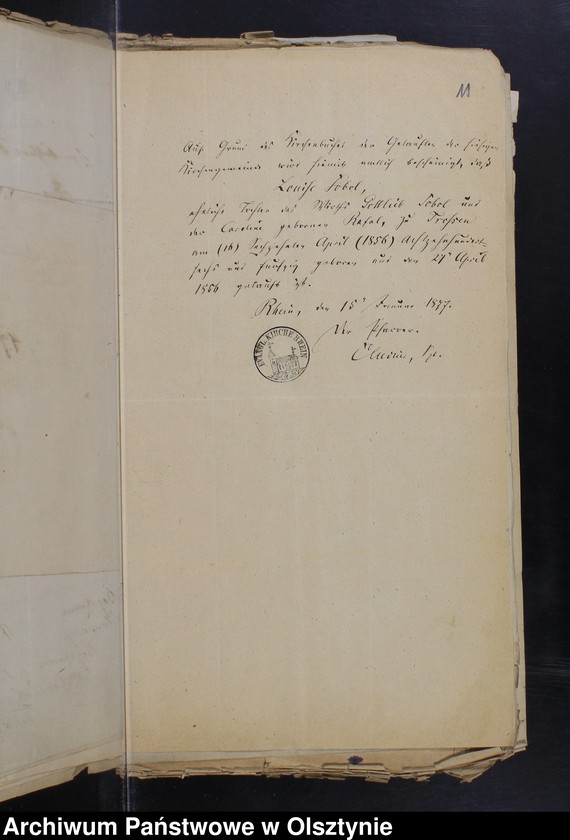 11
Auf Grund des Kirchenbuches der Getauften der hiesigen
Kirchengemeinde wird hiemit amtlich bescheinigt, daß
Louise Sobol,
eheliche Tochter des Wirths Gottlieb Sobol und
der Caroline geborenen Rafal, zu Trossen
am (16) Sechzehnten April (1856) Achtzehnhundert
sechs und funfzig geboren und den 27t April
1856 getauft ist.
Rhein, den 15t Januar 1877.
Der Pfarrer.
EVANGL. KIRCHE RHEIN
Archiwum Państwowe w Olsztynie